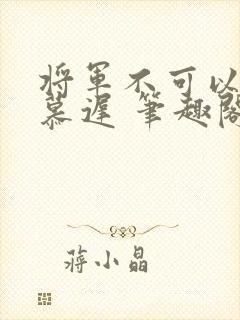 将军不可以
慕遲 筆趣閣
蒋小晶